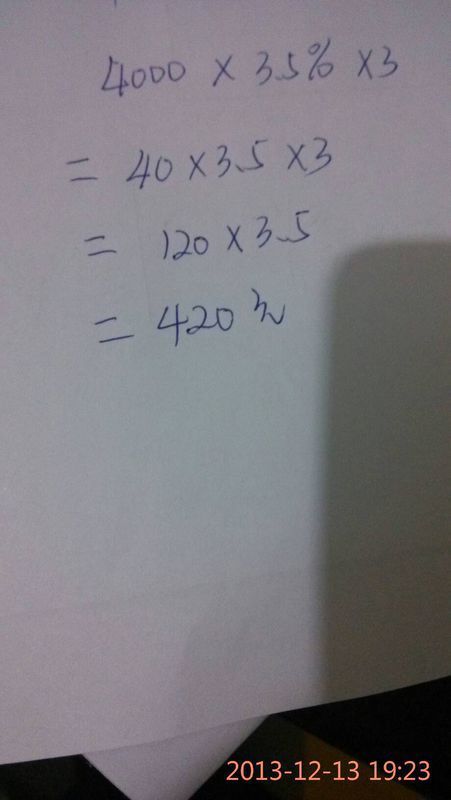 4000 × 3.5% ×3
= 40×3.5×3
= 120×3.5
= 420元
2013-12-13 19:23